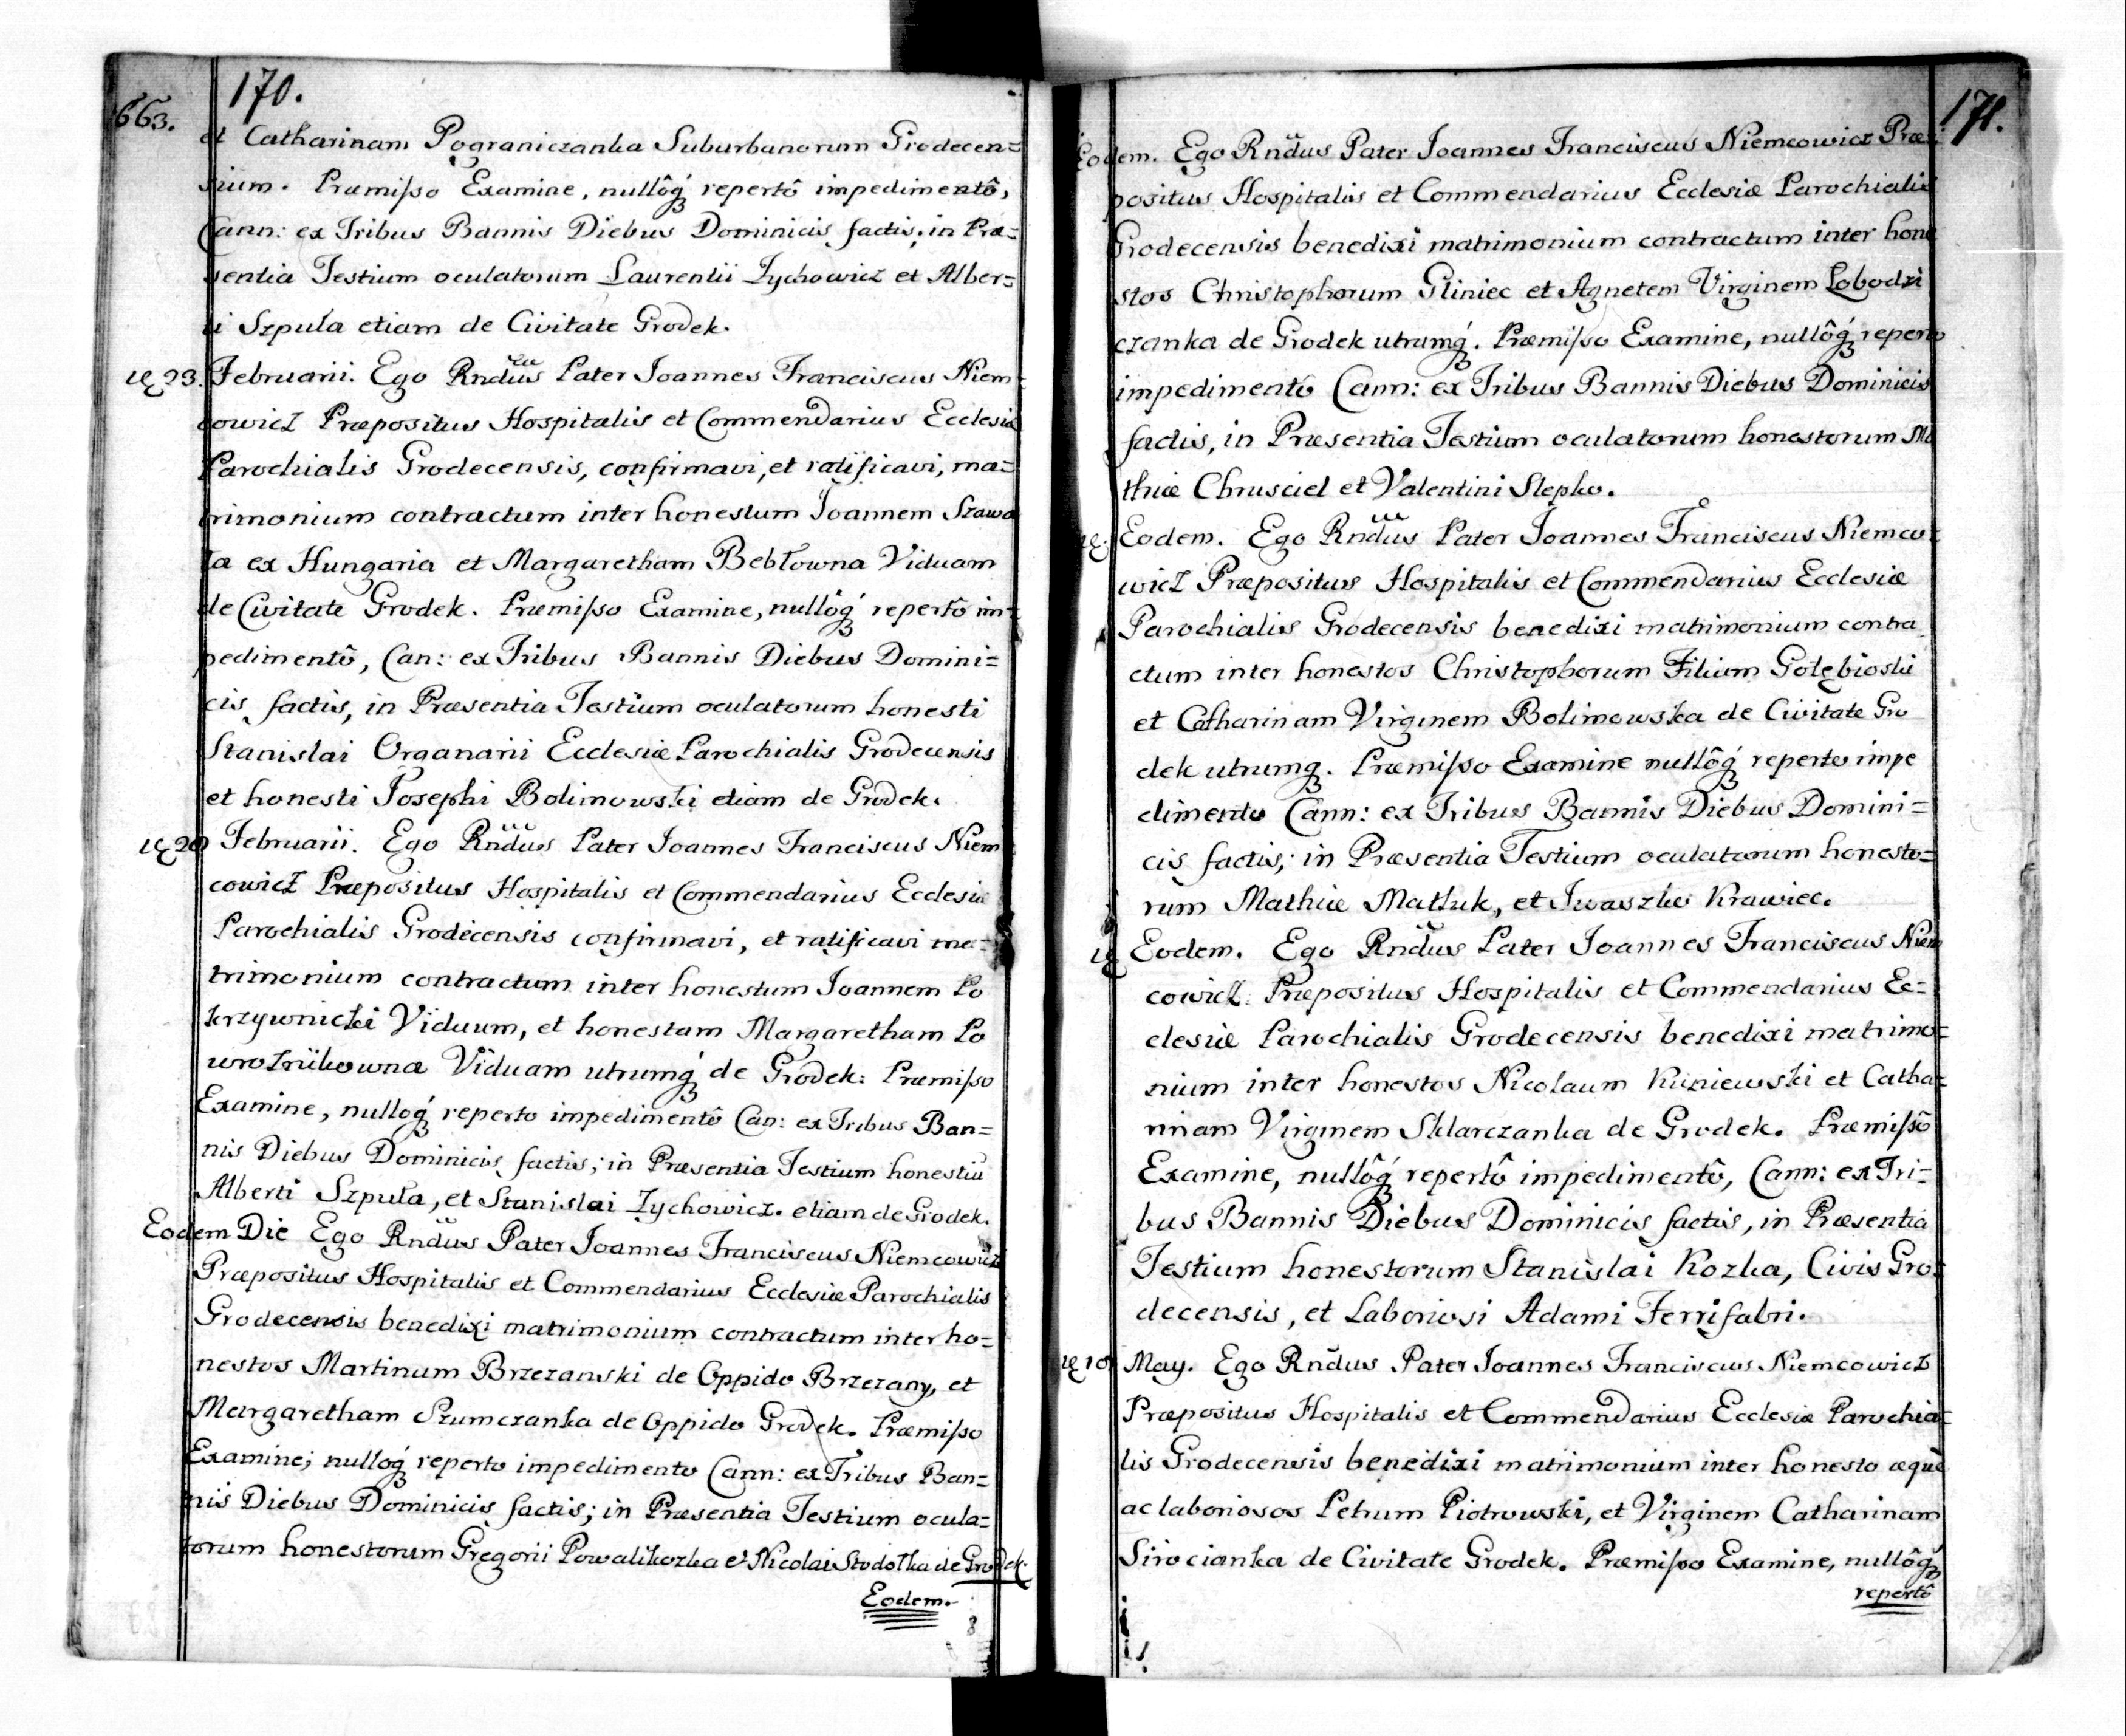 170.
663.
et Catharinam Pograniczanka Suburbanorum Grodecen=
sium. Præmisso Examine, nullôq́ʒ repertô impedimentô,
Cann: ex Tribus Bannis Diebus Dominicis factis, in Præ=
sentia Testium oculatorum Laurentii Zychowicz et Alber=
ti Szpuła etiam de Civitate Grodek.
23. Februarii. Ego Rndus Pater Joannes Franciscus Niem=
cowicz Præpositus Hospitalis et Commendarius Ecclesiæ
Parochialis Grodecensis, confirmavi, et ratificavi, ma=
trimonium contractum inter honestum Joannem Szawo
la ex Hungaria et Margaretham Bebłowna Viduam
de Civitate Grodek. Præmisso Examine, nullôq́ʒ repertô im=
pedimentô, Can: ex Tribus Bannis Diebus Domini=
cis factis, in Præsentia Testium oculatorum honesti
Stanislai Organarii Ecclesiæ Parochialis Grodecensis
et honesti Josephi Bolimowski etiam de Grodek.
Februarii. Ego Rndus Pater Joannes Franciscus Niem
cowicz Præpositus Hospitalis et Commendarius Ecclesiæ
Parochialis Grodecensis confirmavi, et ratificavi ma=
trimonium contractum inter honestum Joannem Po
krzywnicki Viduum, et honestam Margaretham Po
Viduam utrumq́ʒ de Grodek: Præmisso
Examine, nulloq́ʒ reperto impedimentô Can: ex Tribus Ban=
nis Diebus Dominicis factis; in Præsentia Testium
Alberti Szpuła, et Stanislai Zychowicz. etiam de Grodek.
Eodem Die Ego Rndus Pater Joannes Franciscus Niemcowicz
Præpositus Hospitalis et Commendarius Ecclesiæ Parochialis
Grodecensis benedixi matrimonium contractum inter ho=
nestos Martinum Brzezanski de Oppido Brzezany, et
Margaretham Szumczanka de Oppido Grodek. Præmisso
Examine; nulloq́ʒ reperto impedimento Cann: ex Tribus Ban=
nis Diebus Dominicis factis; in Præsentia Testium ocula=
torum honestorum Gregorii Powalikozka et Nicolai Stodolka de Grodek.
Eodem.
171.
Eodem. Ego Rndus Pater Joannes Franciscus Niemcowicz Præ=
positus Hospitalis et Commendarius Ecclesiæ Parochialis
Grodecensis benedixi matrimonium contractum inter hone
stos Christophorum Gliniec et Agnetem Virginem Lobodzi
czanka de Grodek utrumq́ʒ. Præmisso Examine, nullôq́ʒ reperto
impedimentô Cann: ex Tribus Bannis Diebus Dominicis
factis, in Præsentia Testium oculatorum honestorum Ma
thiæ Chrusciel et Valentini Slepko.
Eodem. Ego Rndus Pater Joannes Franciscus Niemco=
wicz Præpositus Hospitalis et Commendarius Ecclesiæ
Parochialis Grodecensis benedixi matrimonium contra
ctum inter honestos Christophorum Filium
et Catharinam Virginem Bolimowska de Civitate Gro
dek utrumqʒ. Præmisso Examine nullôq́ʒ reperto impe
dimento Cann: ex Tribus Bannis Diebus Domini=
cis factis; in Præsentia Testium oculatorum honesto=
rum Mathiæ Matluk, et Iwaszko Krawiec.
Eodem. Ego Rndus Pater Joannes Franciscus Niem
cowicz Præpositus Hospitalis et Commendarius Ec=
clesiæ Parochialis Grodecensis benedixi matrimo=
nium inter honestos Nicolaum Kuniewski et Catha=
rinam Virginem Sklarczanka de Grodek. Præmissô
Examine, nullôq́ʒ repertô impedimentô, Cann: ex Tri=
bus Bannis Diebus Dominicis factis, in Præsentia
Testium honestorum Stanislai Kozka, Civis Gro=
decensis, et Laboriosi Adami Ferrifabri.
May. Ego Rndus Pater Joannes Franciscus Niemcowicz
Præpositus Hospitalis et Commendarius Ecclesiæ Parochia=
lis Grodecensis benedixi matrimonium inter honesto æquè
ac laboriosos Petrum Piotrowski, et Virginem Catharinam
Sirocianka de Civitate Grodek. Præmisso Examine, nullôq́ʒ
repertô